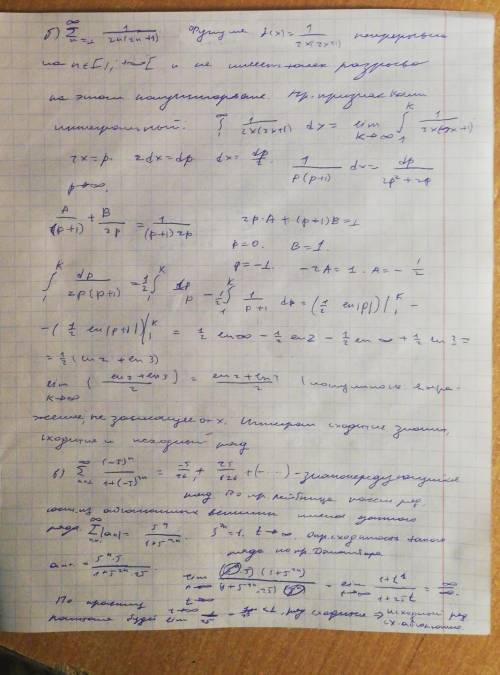 б) ∞ Σ n=1 1/(2n(2n+1)) Функция f(x)= 1/(2x(2x+1)) непрерывна
на n∈[1; +∞[ и не имеет точек разрыва
на этом полуинтервале. Пр. признак Коши
интегральный: ∫₁^∞ 1/(2x(2x+1)) dx = lim K→∞ ∫₁^K 1/(2x(2x+1))
2x=p. 2dx=dp dx=dp/2. 1/(p(p+1)) dx= dp/(2p²+2p)
p→∞.
A/(p+1) + B/2p = 1/((p+1)2p) 2p·A+(p+1)B=1
p=0. B=1.
p=-1. -2A=1. A=-1/2
∫₁^K dp/(2p(p+1)) = 1/2 ∫₁^K dp/p - 1/2 ∫₁^K 1/(p+1) dp = (1/2 ln|p|)|₁^K -
-(1/2 ln|p+1|)|₁^K = 1/2 ln∞ - 1/2 ln2 - 1/2 ln∞ + 1/2 ln3 =
= 1/2 (ln2 + ln3)
lim K→∞ (ln2+ln3)/2 = (ln2+ln3)/2 (получилось выра-
жение, не зависящее от х. Интеграл сходится значит,
сходится и исходный ряд
в) ∞ Σ n=1 (-5)ⁿ/(1+(-5)²ⁿ) = -5/26 + 25/626 +(-...) - знакочередующийся
ряд По пр. Лейбница ряд,
из абсолютных величин данного
ряда. ∞ Σ n=1 |an| = 5ⁿ/(1+5²ⁿ) t→∞. Опр. сходимость такого
ряда по пр. Даламбера
an+1 = 5ⁿ·5/(1+5²ⁿ·25) lim n→∞ (1+5²ⁿ) = lim t→∞ = ∞/∞.
По правилу
будет lim t→∞ ряд сходится ⇒ исходный ряд
сх. абсолютно.